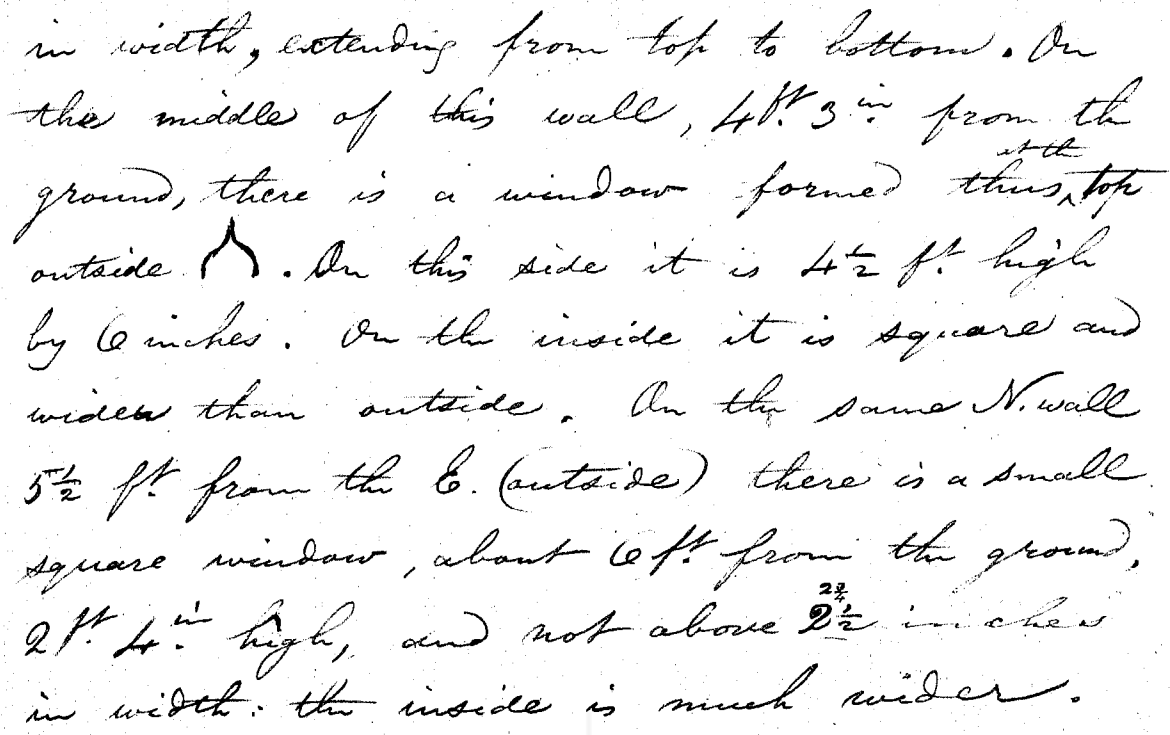 in width, extending from top to bottom. On
the middle of this wall, 4ft. 3in. from the
ground, there is a window formed thus, ^at the top
outside . On this side it is 4½ ft. high
by 6 inches. On the inside it is square and
wider than outside. On the same N. wall
5½ ft. from the E. (outside) there is a small
square window, about 6ft. from the ground,
2ft. 4in. high, and not above 2½ inches
in width: the inside is much wider.